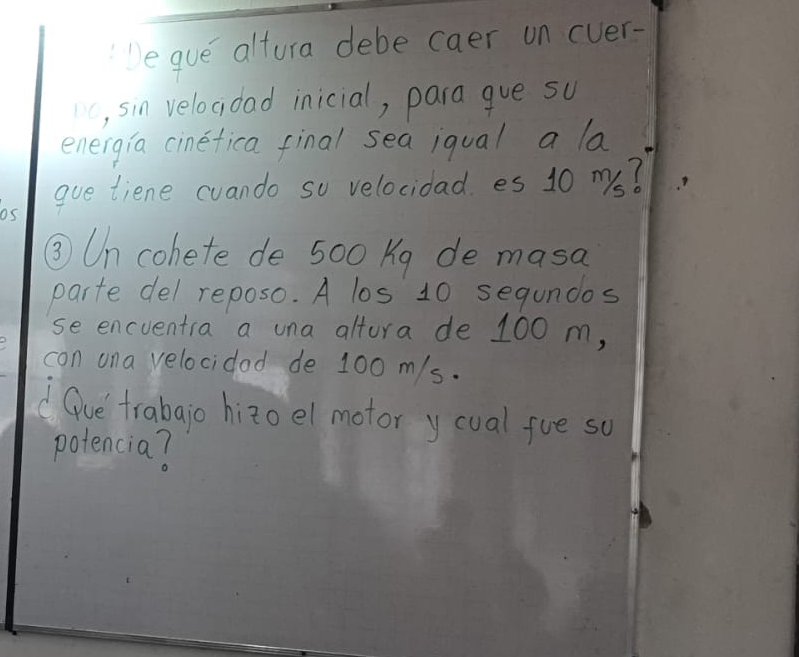 ¿De qué altura debe caer un cuer-
po, sin velocidad inicial, para que su
energía cinética final sea igual a la
que tiene cuando su velocidad. es 10 m/s?
os
③ Un cohete de 500 Kg de masa
parte del reposo. A los 10 segundos
se encuentra a una altura de 100 m,
e
con una velocidad de 100 m/s.
¿Qué trabajo hizo el motor y cual fue su
potencia?